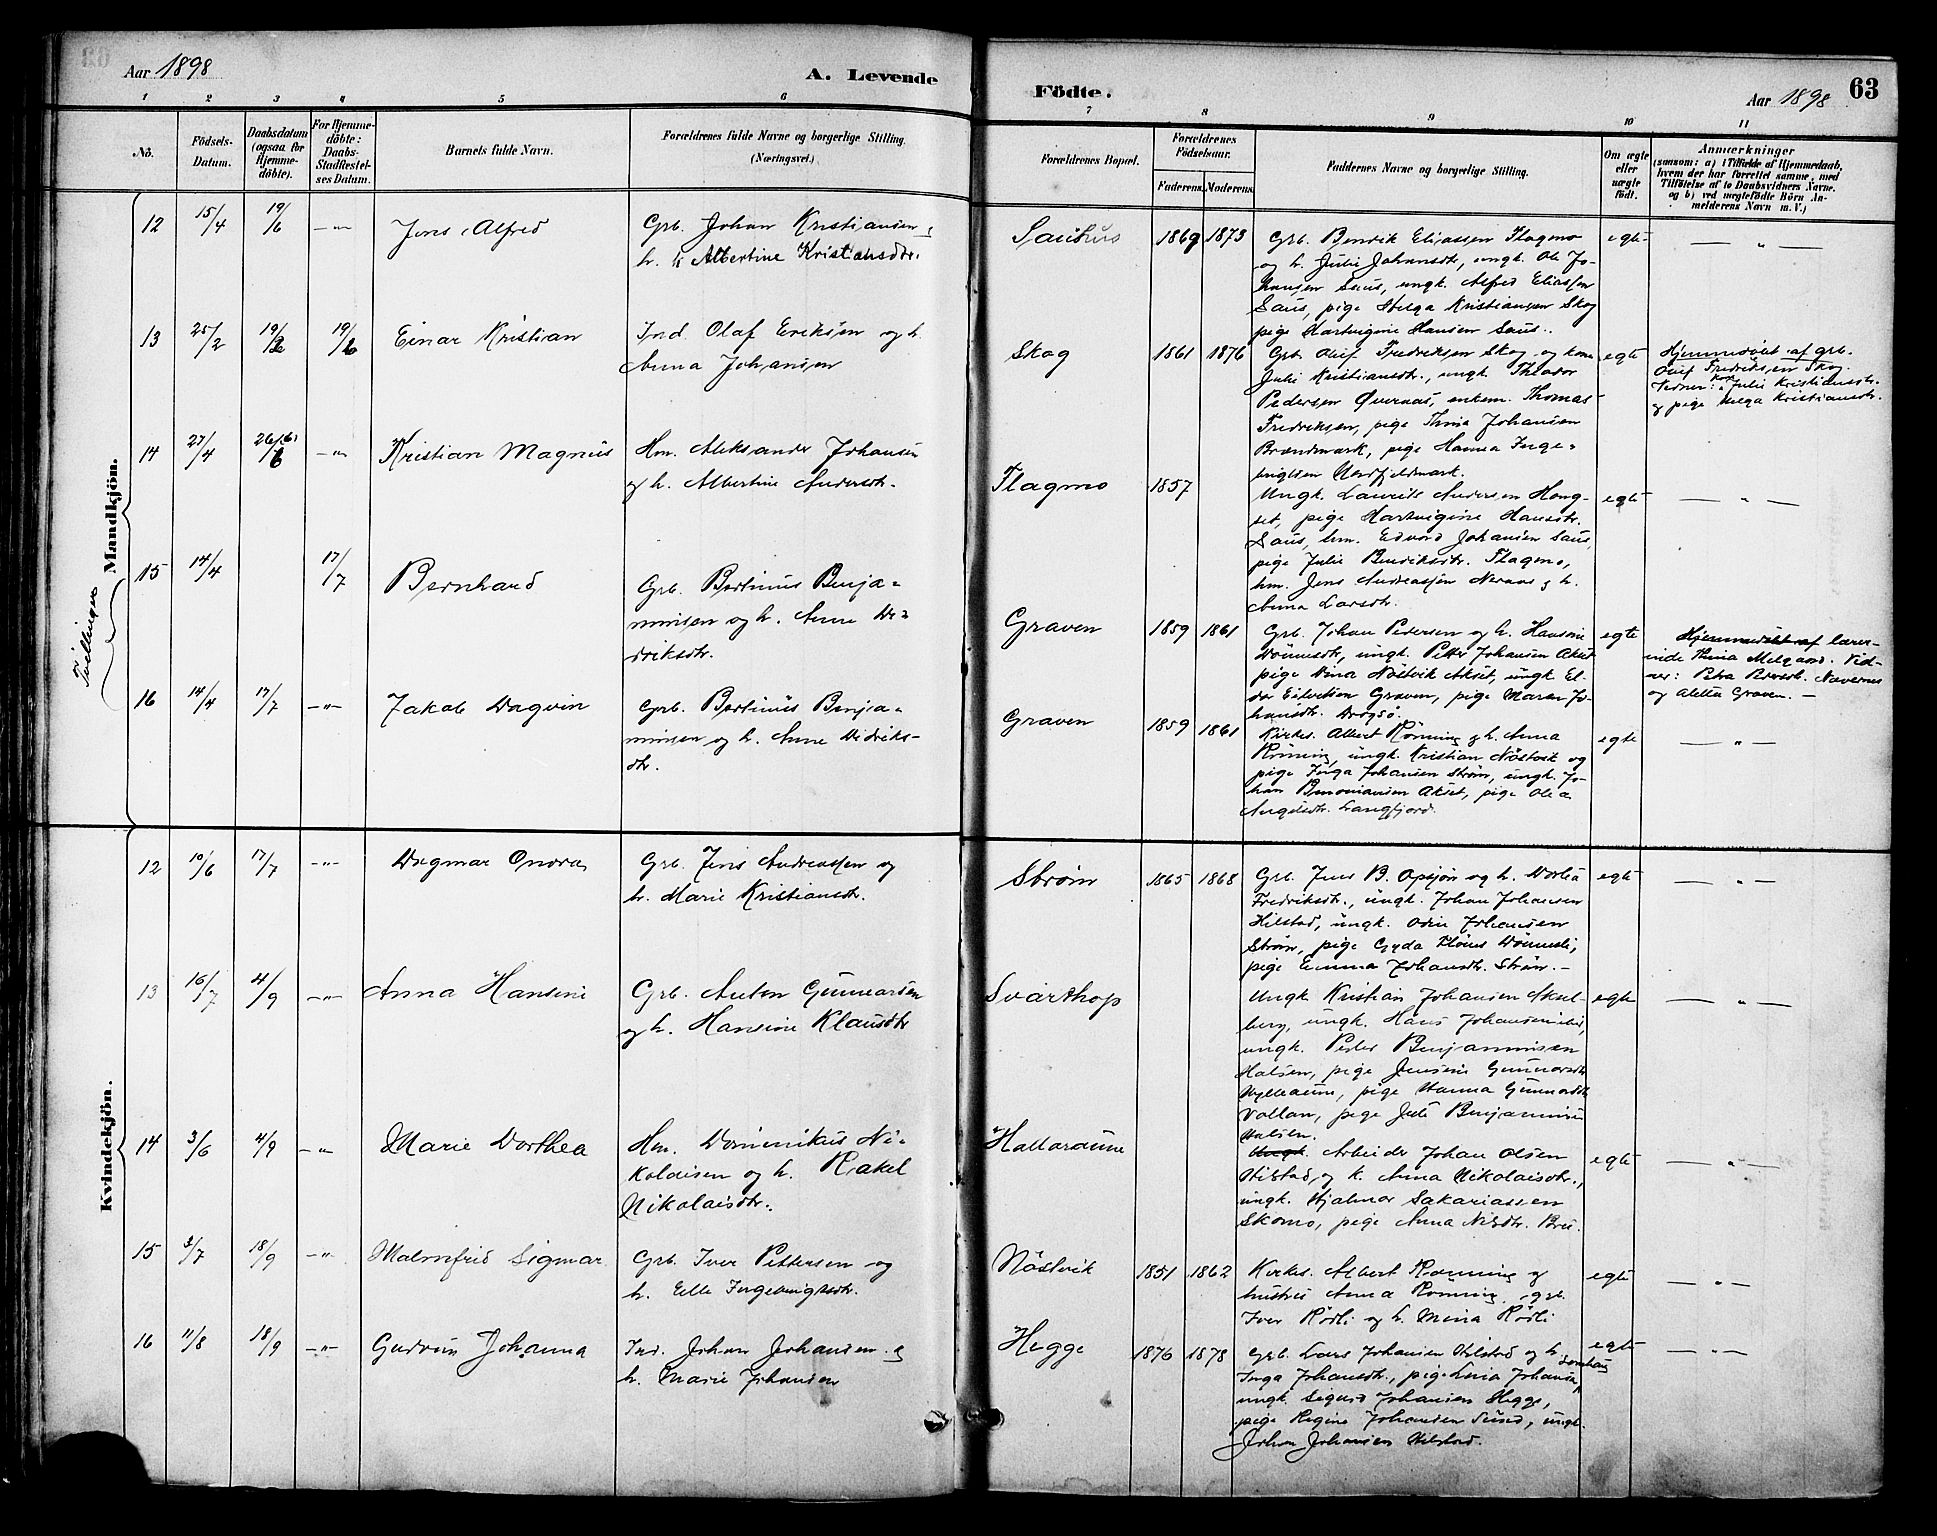 Aar 1898
A. Levende
Födte.
Aar 1898
63
1 2 3 4 5 6 7 8 9 10 11
No.
Födsels-
Datum.
Daabsdatum
(ogsaa for
Hjemme-
döbte).
For Hjemme-
döbte:
Daabs-
Stadfæstel-
ses Datum.
Barnets fulde Navn.
Forældrenes fulde Navne og borgerlige Stilling.
(Næringsvei.)
Forældrenes Bopæl.
Forældrenes
Födselsaar.
Faderens. Moderens.
Faddernes Navne og borgerlige Stilling.
Om ægte
eller
uægte
födt.
Anmærkninger
(saasom: a) i Tilfælde af Hjemmedaab,
hvem der har forrettet samme, med
Tilföielse af to Daabsvidners Navne.
og b) ved uægtefödte Börn An-
melderens Navn m. V.)
Mandkjön.
Tvillinger
12 15/4 19/6 -"- Jens Alfred
Grb. Johan Kristiansen
h. Albertine Kristiansdtr.
Saushus 1869 1873
Grb. Benrik Eliassen Flagmo
og h. Julie Johansdtr, ungk. Ole Jo-
hansen Saus, ungk. Alfred Eliassen
Saus, pige Helga Kristiansen Skog
pige Hartvigine Hansen Saus.
egte — " —
13 25/2 19/6 Einar Kristian
Ind. Olaf Eriksen og h.
Anna Johansen
Skog 1861 1876
Grb. Oluf Fredriksen Skog og kone
Julie Kristiansdtr., ungk. Theodor
Pedersen Övernæs, enkem. Thomas
Fredriksen, pige Thina Johansen
Brændmark, pige Hanna Inge-
brigtsen Nordfjeldmark.
egte
Hjemmedöbt af grb.
Oluf Fredriksen Skog.
Vidner: kone Julie Kristiansdtr.
og pige Helga Kristiansdtr.
14 27/4 26/6 -"- Kristian Magnus
Hm. Aleksander Johansen
og h. Albertine Andersdtr.
Flagmo 1857
Ungk. Laurits Andersen Hong-
set, pige Hartvigine Hansdtr.
Saus, hm. Edvard Johansen Saus,
pige Julie Benriksdtr. Flagmo,
hm. Jens Andreassen Neraas og h.
Anna Larsdtr.
egte — " —
15 14/4 17/7 Bernhard
Grb. Bertinus Benja-
minsen og h. Anne Di-
driksdtr.
Graven 1859 1861
Grb. Johan Pedersen og h. Hansine
Dönnesdtr, ungk. Petter Johansen Akset
pige Nina Nöstvik Akset, ungk. El-
Graven, pige Maren Jo-
hansdtr. Drogsö.
egte
Hjemmedöbt af lærer-
inde Thina Melgaard. Vid-
ner: Petra Nævernes
og Aletta Graven. —
16 14/4 17/7 -"- Jakob Dagvin
Grb. Bertinus Benja-
minsen og h. Anne Didriks-
dtr.
Graven 1859 1861
Kirkes. Albert Rönning og h. Anna
Rönning, ungk. Kristian Nöstvik og
pige Inga Johansen Ström, ungk. Jo-
han Benoniansen Akset, pige Olea
Langfjord.
egte — " —
Kvindekjön.
12 10/6 17/7 -"- Dagmar Onora
Grb. Jens Andreassen og
h. Marie Kristiansdtr.
Ström 1865 1868
Grb. Jens B. Opsjön og h. Dortea
Fredriksdtr., ungk. Johan Johansen
Hilstad, ungk. Odin Johansen
Ström, pige Gyda
pige Emma Johansdtr. Ström. —
egte — " —
13 16/7 4/9 -"- Anna Hansine
Grb. Anton Gunnarsen
og h. Hansine Klausdtr
Svarthop
Ungk. Kristian Johansen Aksel-
berg, ungk. Hans Johansen ibd.,
ungk. Peder Benjaminsen
Halsen, pige Jensine Gunnarsdtr
Hylleraune, pige Hanna Gunnarsdtr
Vollan, pige Benjaminsen
Halsen.
egte — " —
14 3/6 4/9 -"- Marie Dorthea
Hm. Dominikus Ni-
kolaisen og h. Rakel
Nikolaisdtr.
Halloraune
Arbeider Johan Olsen
Hilstad, og k. Anna Nikolaisdtr.,
ungk. Hjalmar Sakariassen
Skomo, pige Anna Nilsdtr. Bru.
egte — " —
15 3/7 18/9 -"- Malmfrid Sigmar
Grb. Iver Pettersen og
h. Elle Ingebrigtsdtr.
Nöstvik 1851 1862
Kirkes. Albert Rönning og
hustru Anna Rönning, grb.
Iver Rödli og h. Mina Rödli
egte — " —
16 11/8 18/9 -"- Gudrun Johanna
Ind. Johan Johansen og
h. Marie Johansen
Hegge 1876 1878
Grb. Lars Johansen Hilstad og h.
Inga Johansdtr., pige Lina Johansen
ungk. Sigurd Johansen Hegge,
pige Regine Johansen Sund, ungk.
Johan Johansen Hilstad.
egte — " —